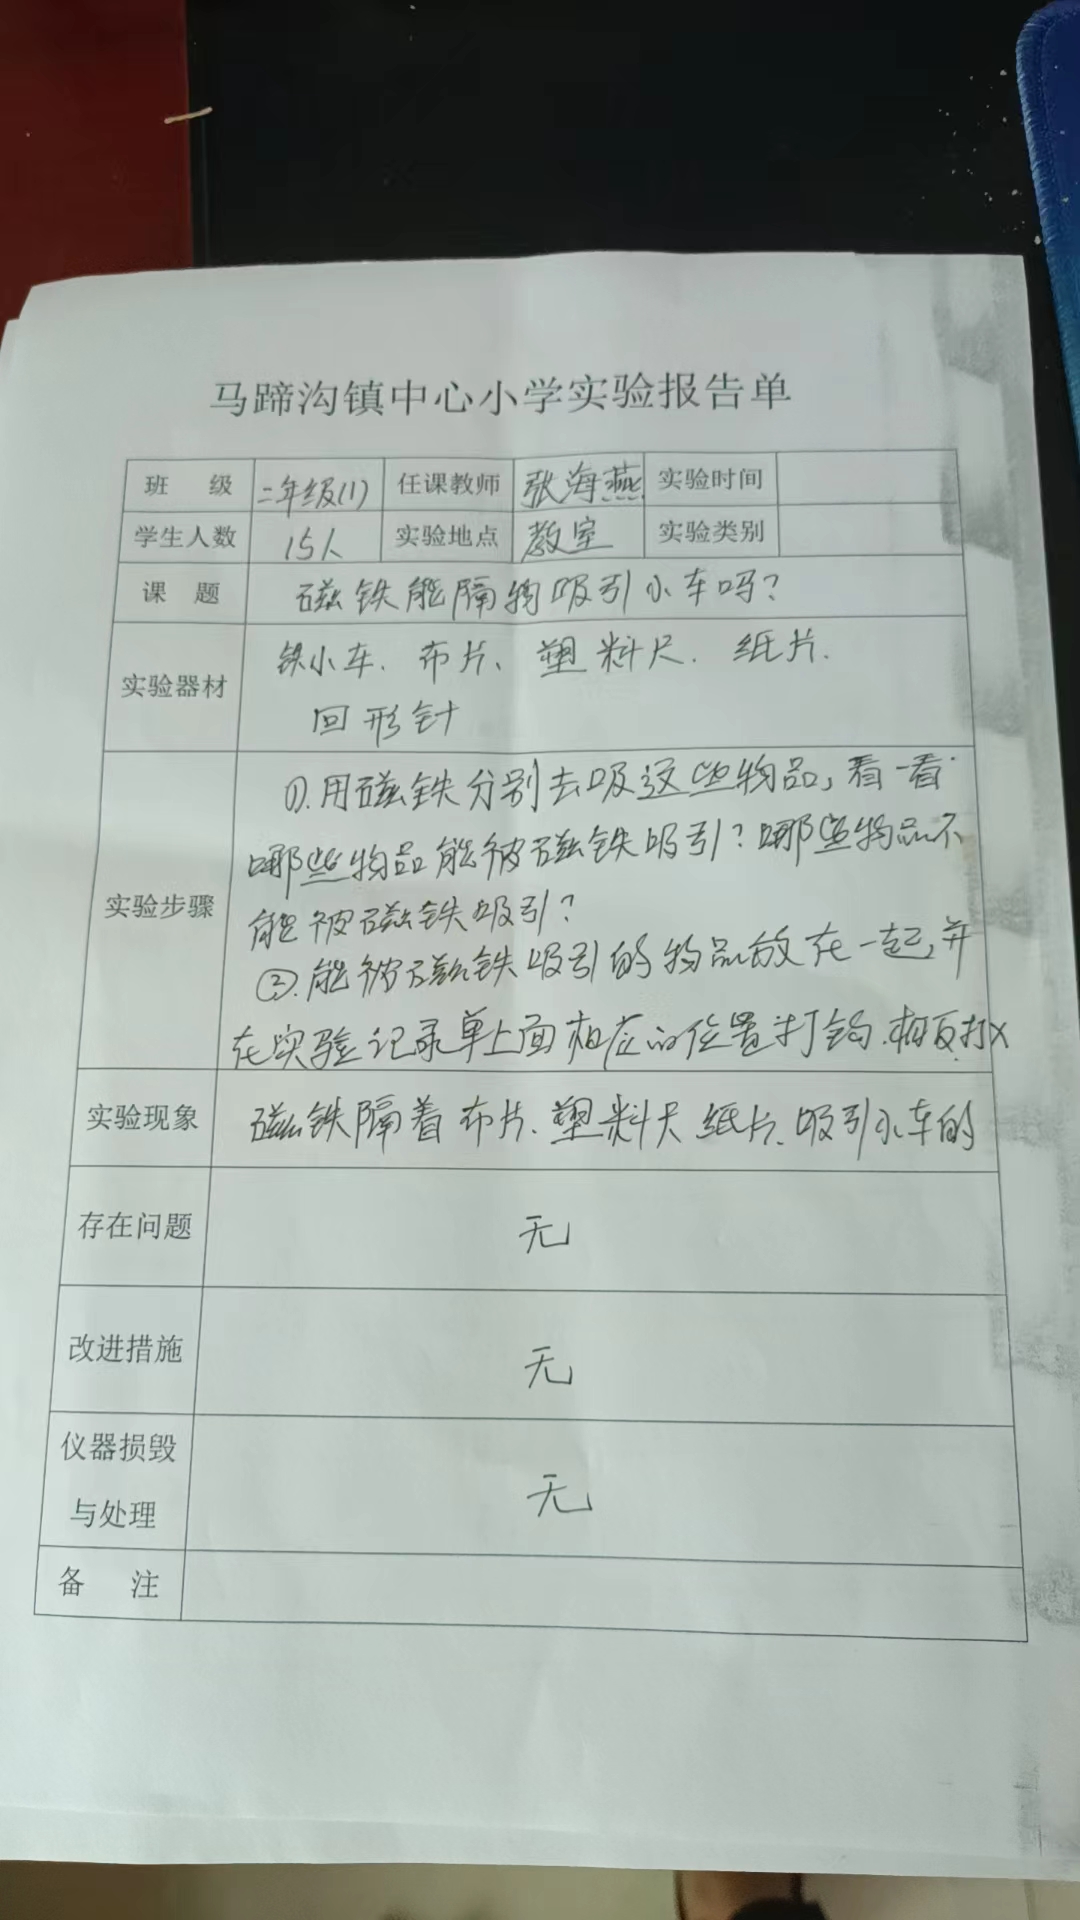 马蹄沟镇中心小学实验报告单
班 级 二年级(1) 任课教师 张海燕 实验时间
学生人数 15人 实验地点 教室 实验类别
课 题 磁铁能隔物吸引小车吗?
铁小车、布片、塑料尺、纸片、
实验器材
回形针
①.用磁铁分别去吸这些物品,看一看
哪些物品能被磁铁吸引?哪些物品不
实验步骤
能被磁铁吸引?
②.能被磁铁吸引的物品放在一起,并
在实验记录单上面相应的位置打钩.相反打×
实验现象 磁铁隔着布片、塑料尺 纸片、吸引小车的
存在问题 无
改进措施 无
仪器损毁
与处理 无
备 注